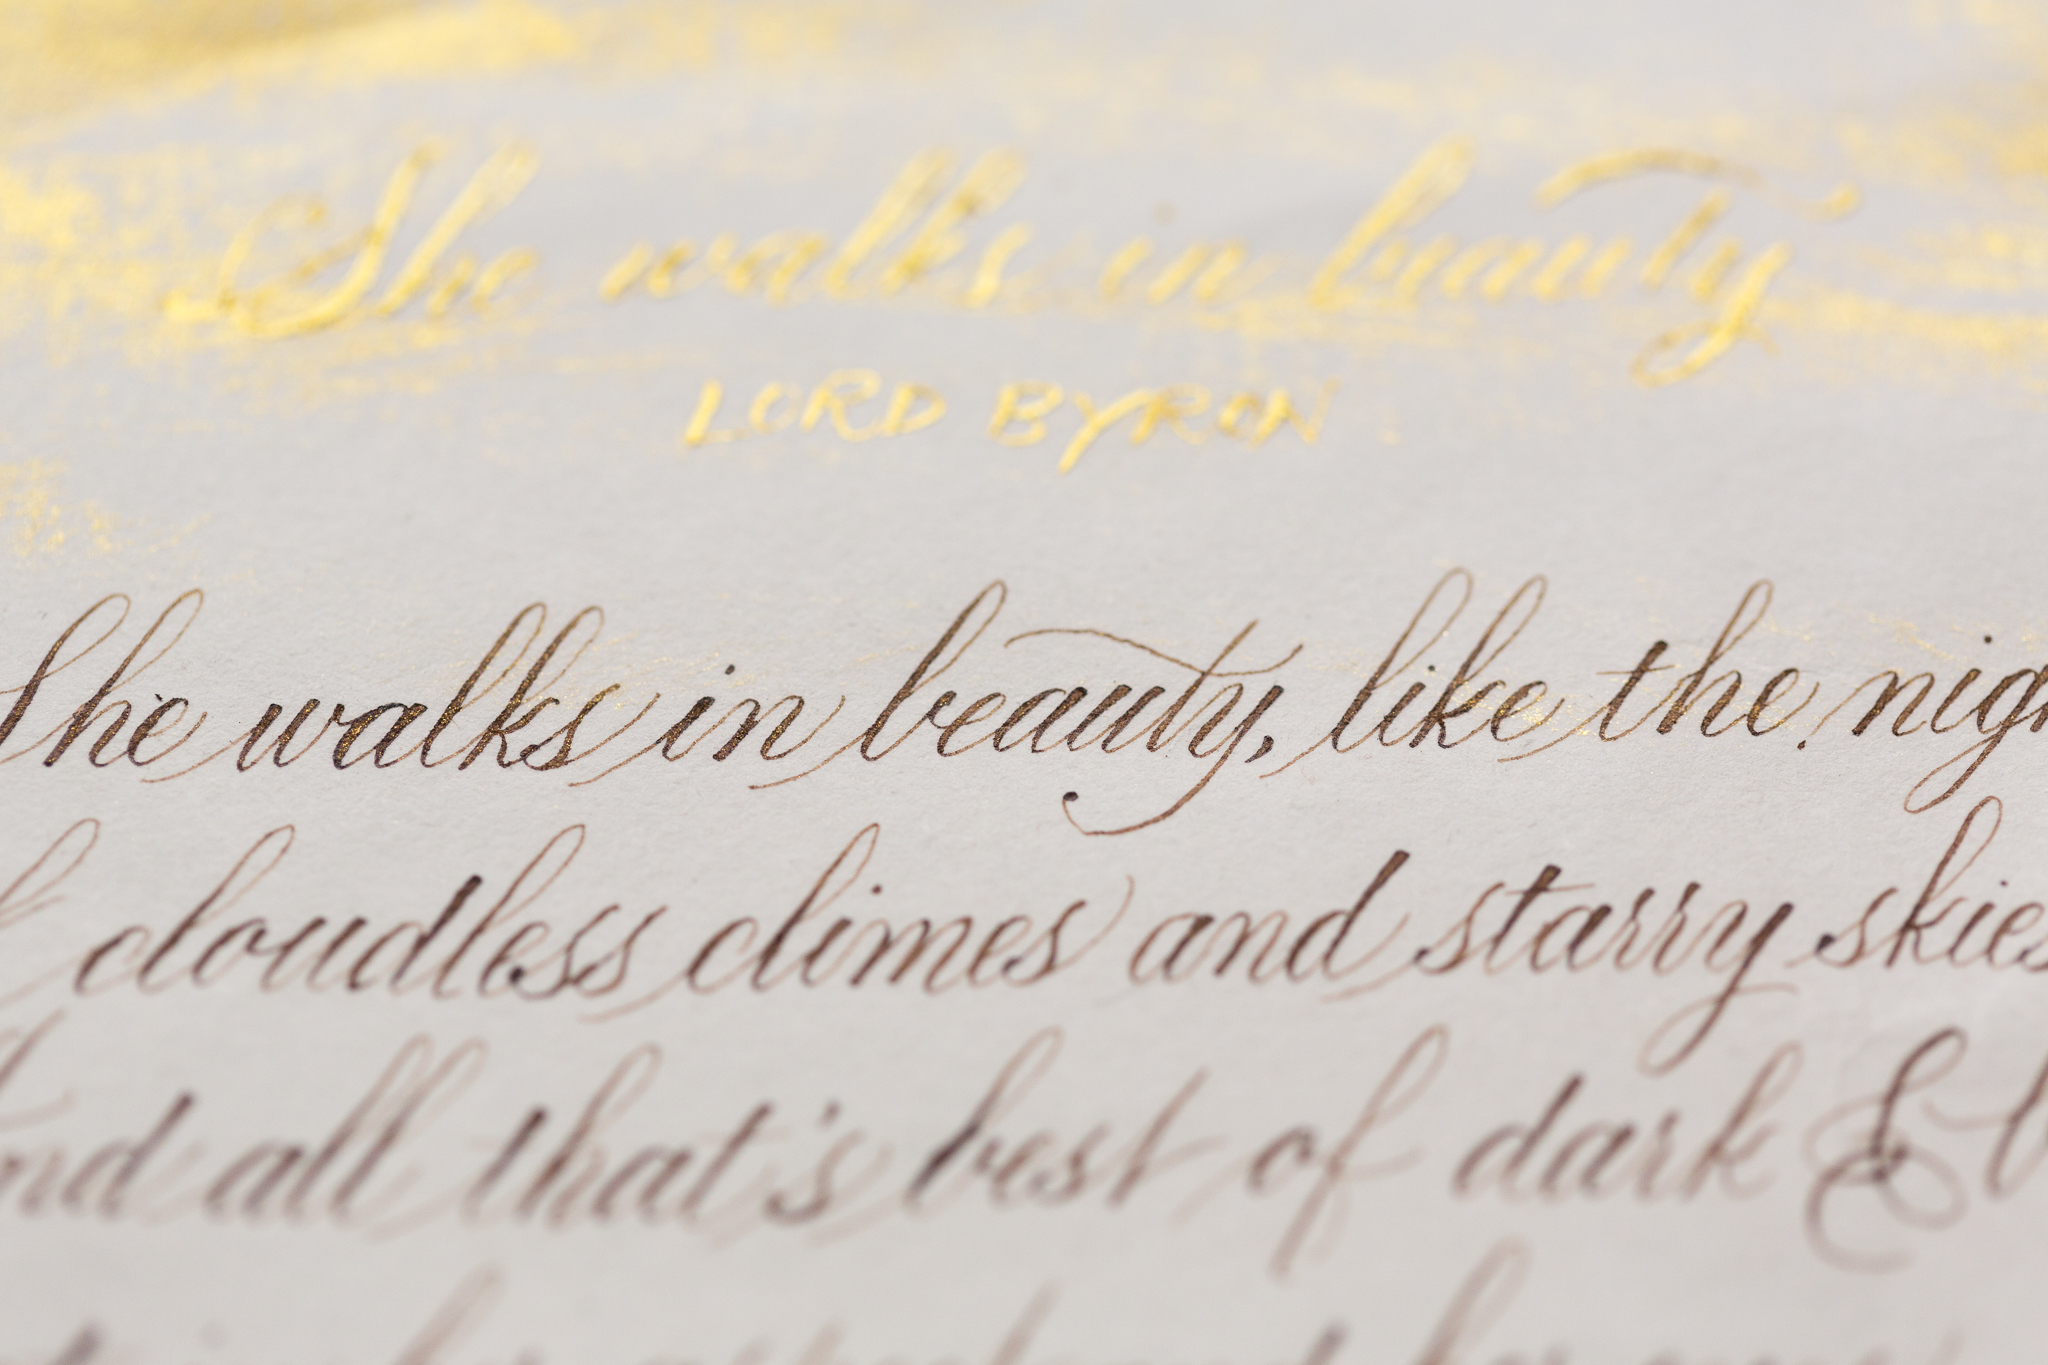 She walks in beauty
LORD BYRON
She walks in beauty, like the nigh
cloudless climes and starry skies
And all that's best of dark & b